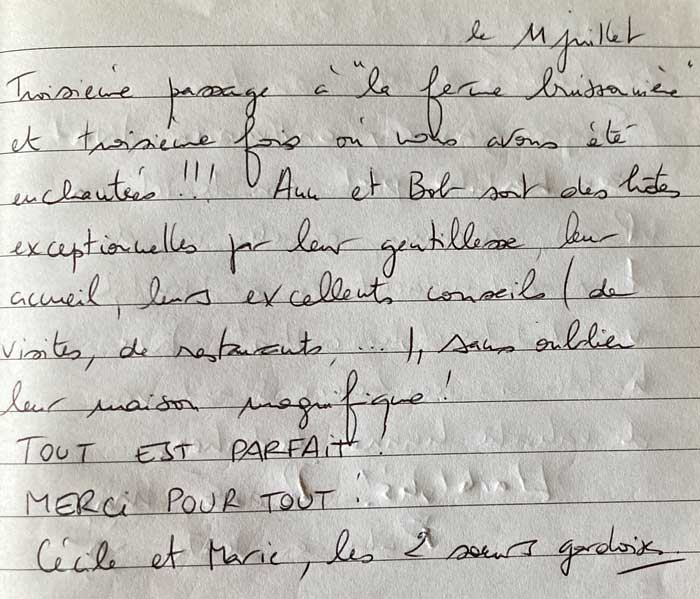 le 11 juillet
Troisième passage à "la ferme buissonnière"
et troisième fois où nous avons été
enchantées !!! Ann et Bob sont des hôtes
exceptionnelles par leur gentillesse, leur
accueil, leurs excellents conseils (de
visites, de restaurants, ...), sans oublier
leur maison magnifique !
TOUT EST PARFAIT !
MERCi POUR TOUT !
Cécile et Marie, les 2 sœurs gardoises